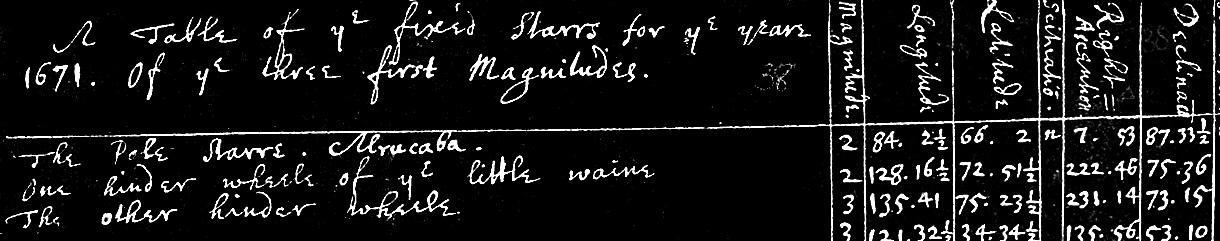 A Table of yᵉ fixed Starrs for yᵉ yeare
1671. Of yᵉ three first Magnitudes. 38
Magnitude. Longitude Latitude Scituatiō. Right Ascention Declinat
The Pole Starre. Alrucaba. 2 84. 2½ 66. 2 n 7. 53 87.33½
One hinder wheele of yᵉ little waine 2 128.16½ 72. 51½ 222.46 75.36
The other hinder wheele 3 135.41 75. 23½ 231.14 73.15
3 121.32½ 34.34½ 135.56 53.10